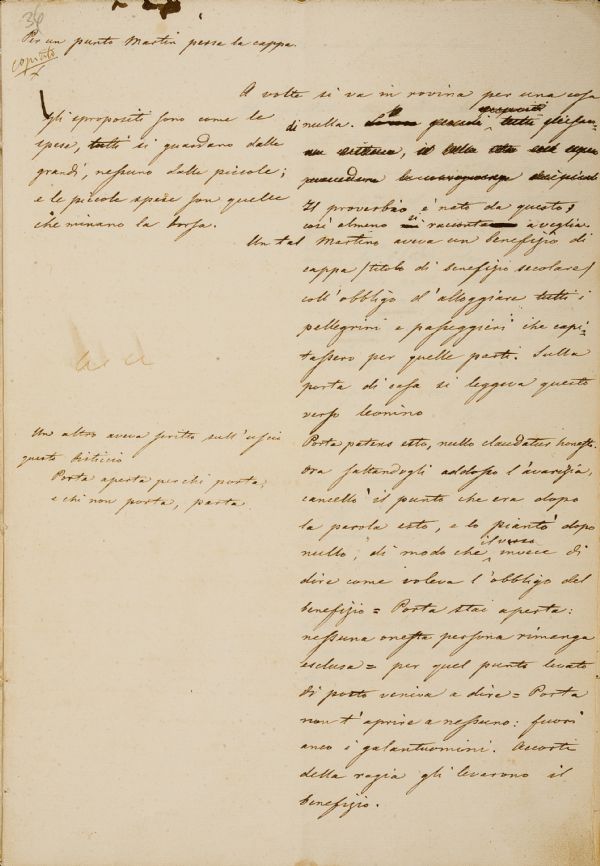 36
Per un punto Martin perse la cappa.
copiato
A volte si va in rovina per una cosa
di nulla.
Il proverbio è nato da questo,
così almeno si racconta a veglia.
Un tal Martino aveva un benefizio di
cappa (titolo di benefizio secolare)
coll'obbligo d'alloggiare tutti i
pellegrini e passeggieri che capi-
tassero per quelle parti. Sulla
porta di casa si leggeva questo
verso leonino
Porta patens esto, nullo claudatur honesto.
Ora saltandogli addosso l'avarizia,
cancellò il punto che era dopo
la parola esto, e lo piantò dopo
nullo; di modo che il verso invece di
dire come voleva l'obbligo del
benefizio = Porta stai aperta:
nessuna onesta persona rimanga
esclusa = per quel punto levato
di posto veniva a dire = Porta
non t'aprire a nessuno: fuori
anco i galantuomini. Accorti
della ragia gli levarono il
benefizio.
gli spropositi sono come le
spese, tutti si guardano dalle
grandi, nessuno dalle piccole;
e le piccole spese son quelle
che minano la borsa.
Un altro aveva scritto sull'uscio
questo bisticcio
Porta aperta per chi porta,
e chi non porta, parta.